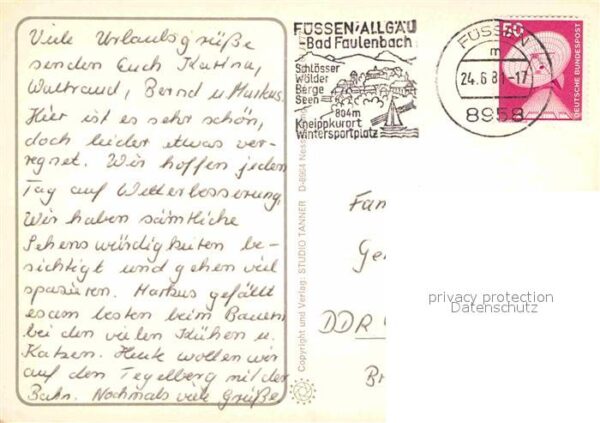 Viele Urlaubsgrüße
senden Euch Karina,
Waltraud, Bernd u. Markus.
Hier ist es sehr schön,
doch leider etwas ver-
regnet. Wir hoffen jeden
Tag auf Wetterbesserung,
Wir haben sämtliche
Sehenswürdigkeiten be-
sichtigt und gehen viel
spazieren. Markus gefällt
es am besten beim Bauern
bei den vielen Kühen u.
Katzen. Heute wollen wir
auf den Tegelberg mit der
Bahn. Nochmals viele Grüße
FÜSSEN/ALLGÄU
-Bad Faulenbach
Schlösser
Wälder
Berge
Seen
804m
Kneippkurort
Wintersportplatz
FÜSSEN
m
24.6.8 -17
8958
50
DEUTSCHE BUNDESPOST
Copyright und Verlag: STUDIO TANNER D-8964 Ness
Fam
Ge
DDR
B
privacy protection
Datenschutz